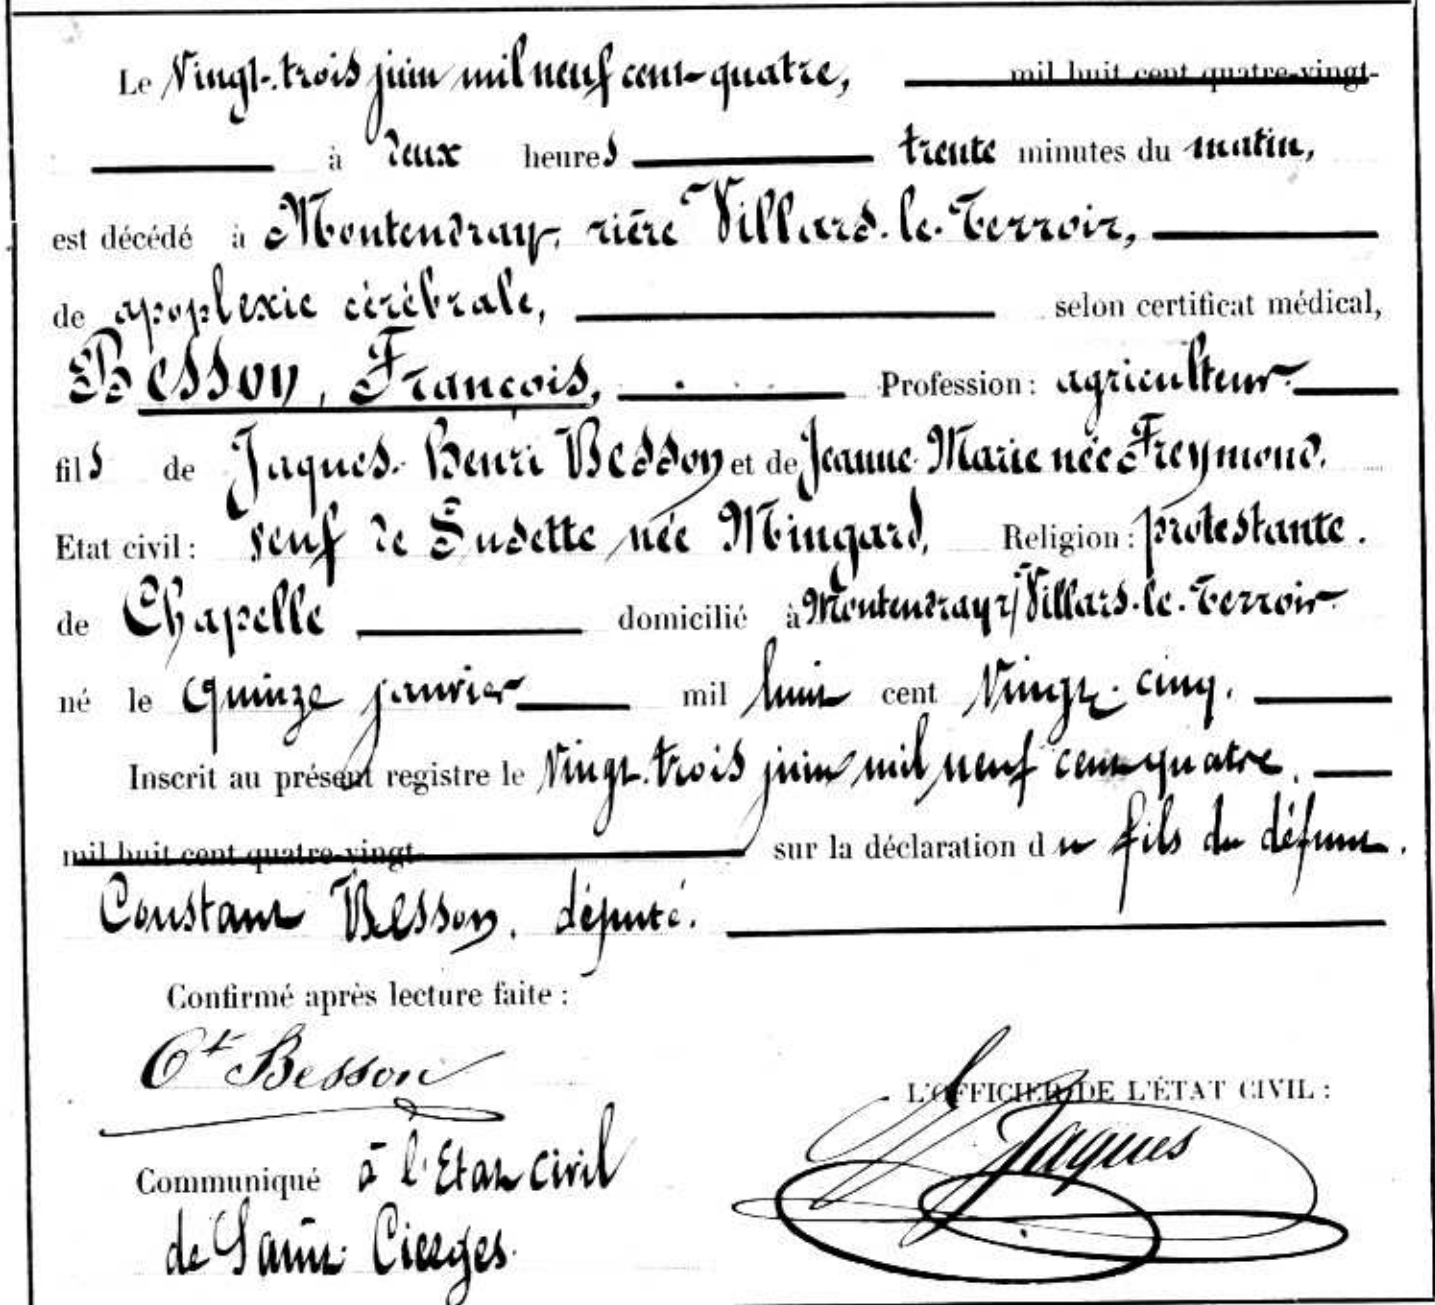 Le Vingt-trois juin mil neuf cent quatre, mil huit cent quatre-vingt-
à deux heures trente minutes du matin,
est décédé à Montendray, rière Villard-le-Terroir,
de apoplexie cérébrale, selon certificat médical,
Besson, François, Profession : agriculteur
fils de Jaques-Henri Besson et de Jeanne-Marie née Freymond.
Etat civil : veuf de Sudette née Mingard, Religion : protestante.
de Chapelle domicilié à Montendray r/ Villars-le-Terroir
né le quinze janvier mil huit cent vingt-cinq.
Inscrit au présent registre le vingt-trois juin mil neuf cent quatre,
mil huit cent quatre-vingt- sur la déclaration du fils du défunt.
Constant Besson, député.
Confirmé après lecture faite :
Ct Besson
L'OFFICIER DE L'ÉTAT CIVIL :
Jaques
Communiqué à l'Etat civil
de Saint-Cierges.